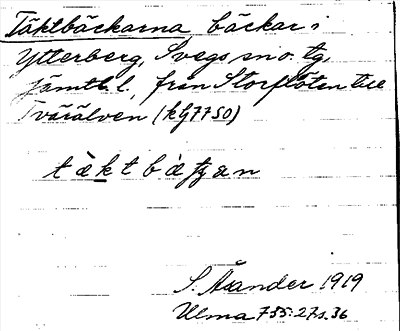 Täktbäckarna, bäckar i
Ytterberg, Svegs sn o. tg,
Jämtl. l., från Storflöten till
Tvärälven (kg 7750)
t ä̀ k t b ä̀ ꞔ a n
S. Åsander 1919
Ulma 735:27 s. 36